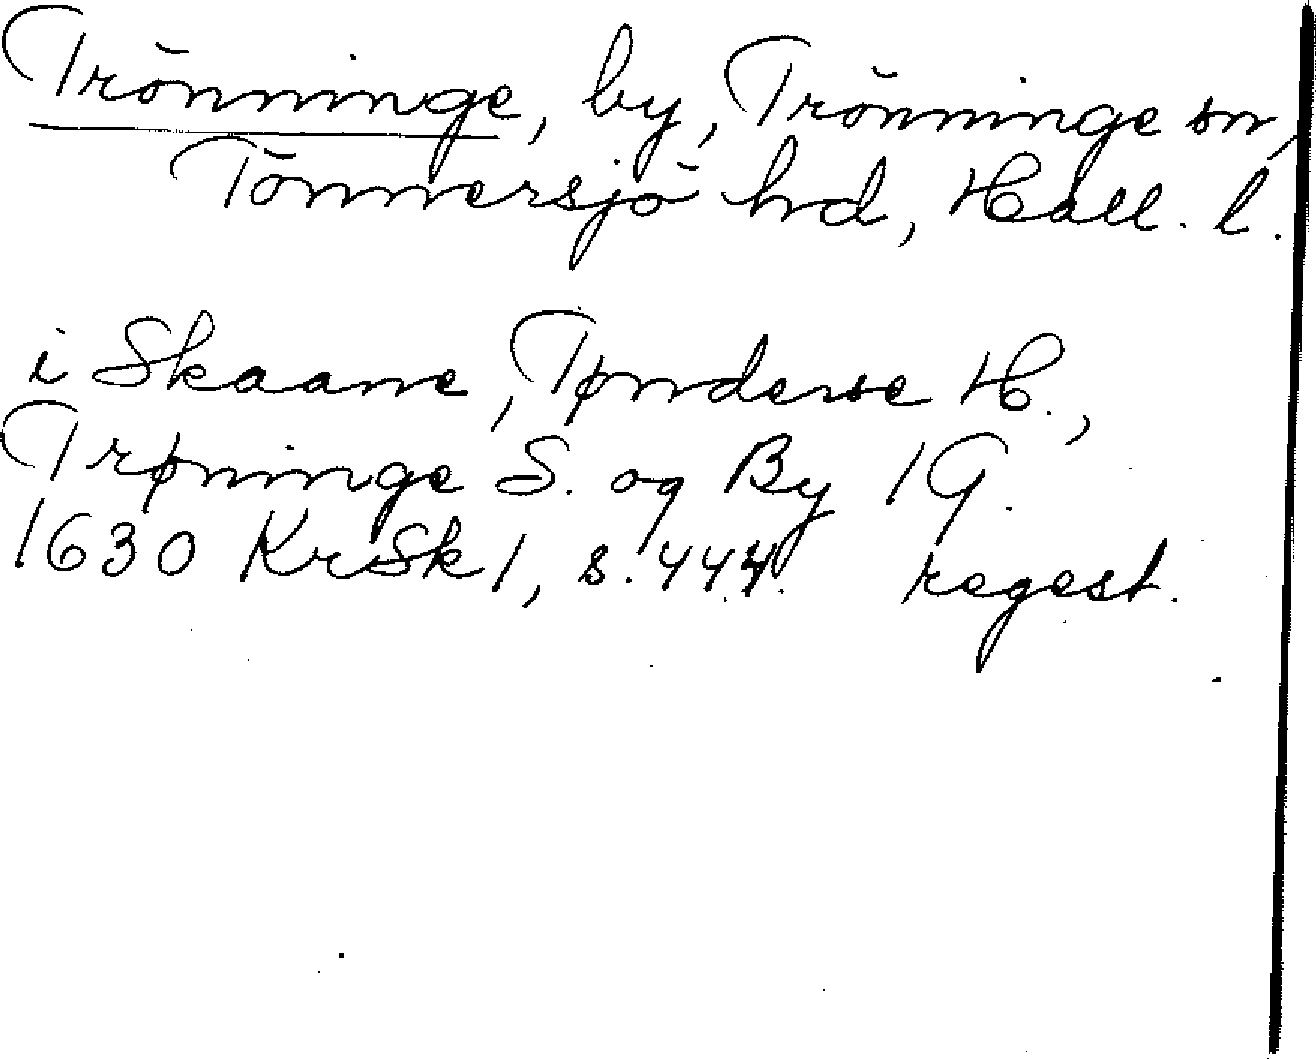 Trönninge, by, Trönninge sn,
Tönnersjö hd, Hall. l.
i Skaane, Tønderse H.,
Trøninge S. og By 1 G.
1630 KrSk 1, s. 444. regest.